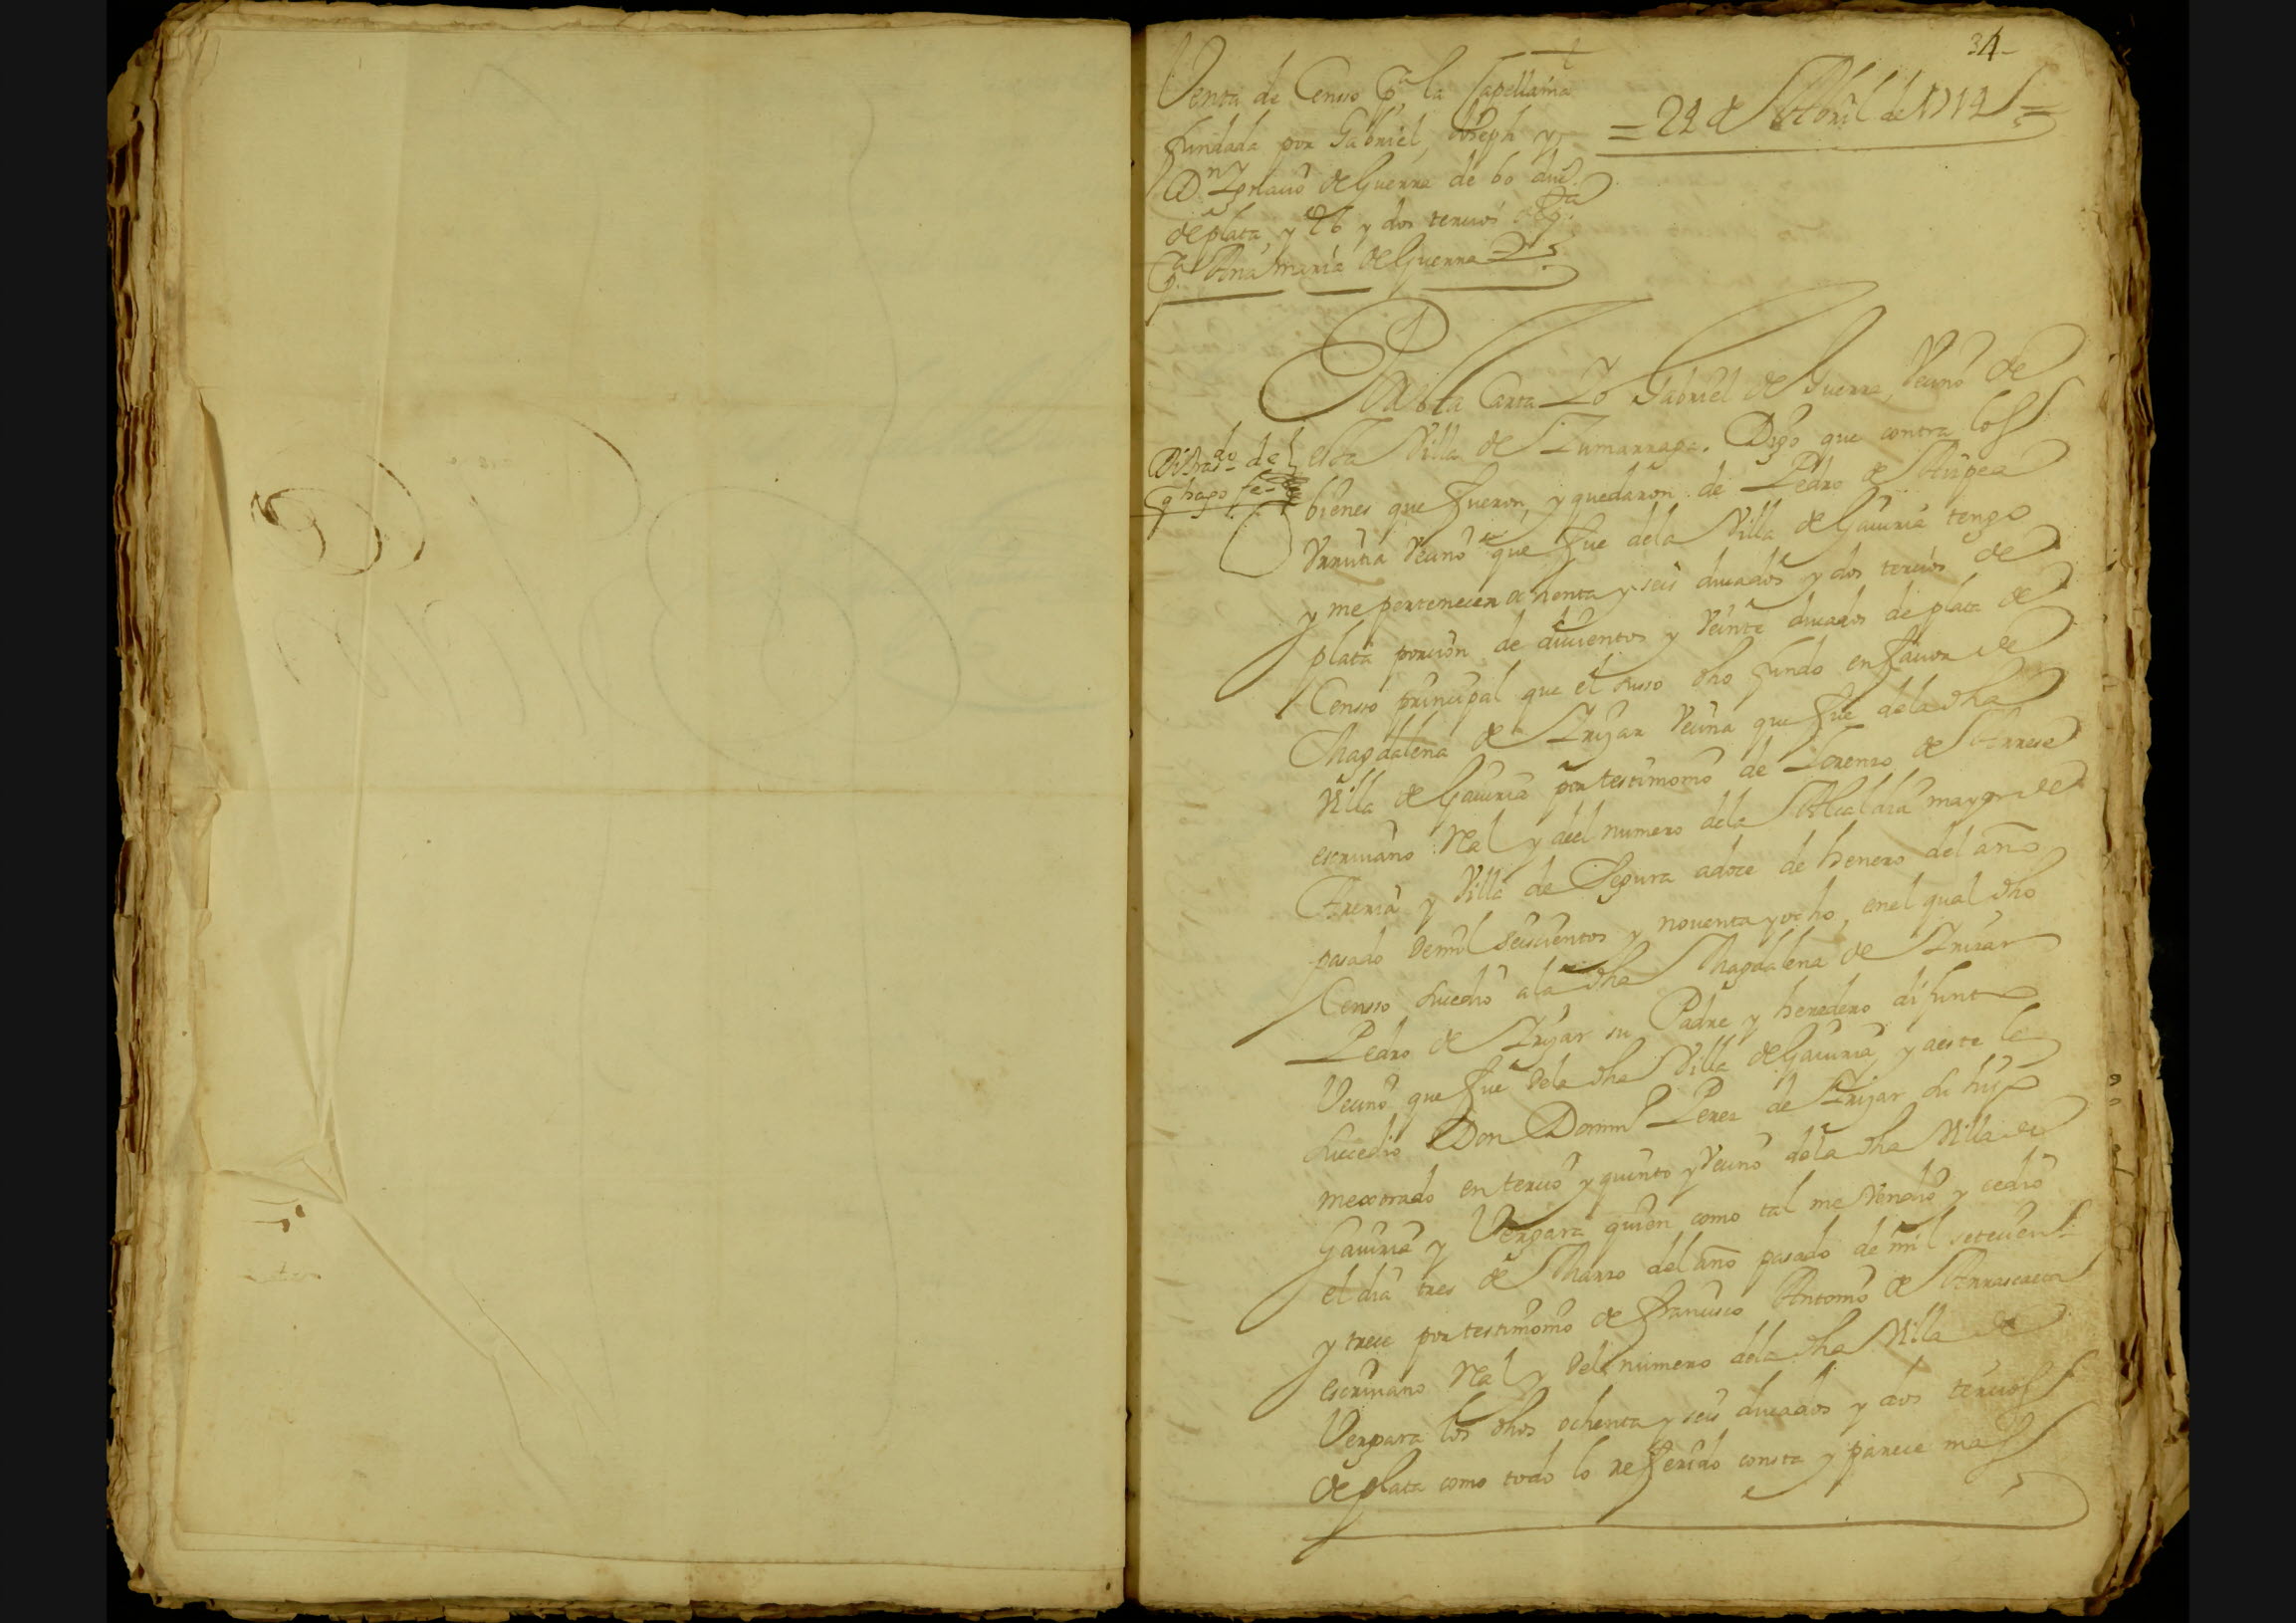 34
Venta de Censso p.ª la Capellania
fundada por Gabriel, Joseph y
D.n Ygnacio de Guerra de 60 duc.s
de plata, y 26 y dos tercios de
p.ª Ana maria de Guerra
= 24 de Abril de 1714 =
esta Carta Yo Gabriel de Guerra, Vecino de
esta Villa de Zumarraga. Digo que contra los
bienes que fueron, y quedaron de Pedro de Aizpea
Urrutia Vecino que fue dela Villa de Gauiria tengo
y me pertenecen ochenta y seis ducados y dos tercios de
plata porcion de ducientos y Veinte ducados de plata de
Censso principal que el susso dho fundo en fauor de
Magdalena de Yrizar Vecina que fue dela dha
Villa de Gauiria por testimonio de Lorenzo de Arrese
escriuano Real y del numero dela Alcaldia mayor de
Areria y Villa de Segura adoze de henero del año
pasado de mil seiscientos y nouenta y ocho, enel qual dho
Censso sucedio ala dha Magdalena de Yrizar
Pedro de Yrizar su Padre y heredero difunto
Vecino que fue dela dha Villa de Gauiria, y aeste le
sucedio Don Domin.º Perez de Yrizar su hijo
mexorado en tercio y quinto y Vecino dela dha Villa de
Gauiria y Vergara quien como tal me Vendio y cedio
el dia tres de Marzo del año pasado de mil setecient.s
y trece por testimonio de francisco Antonio de Arrascaeta
escriuano Real y del numero dela dha Villa de
Vergara los dhos ochenta y seis ducados y dos tercios
de plata como todo lo referido consta y parece mas
Di trasdo. de
q hago fe